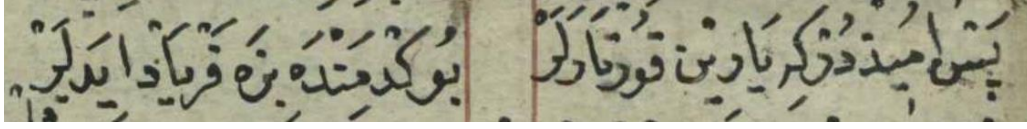 پَسْ اُمِيدْدُرْكِه يَارِينْ قُورْتَارَلَرْ بُو كَدَمَنْدَه بِزَه فَرْيَادْ ايدَلَرْ